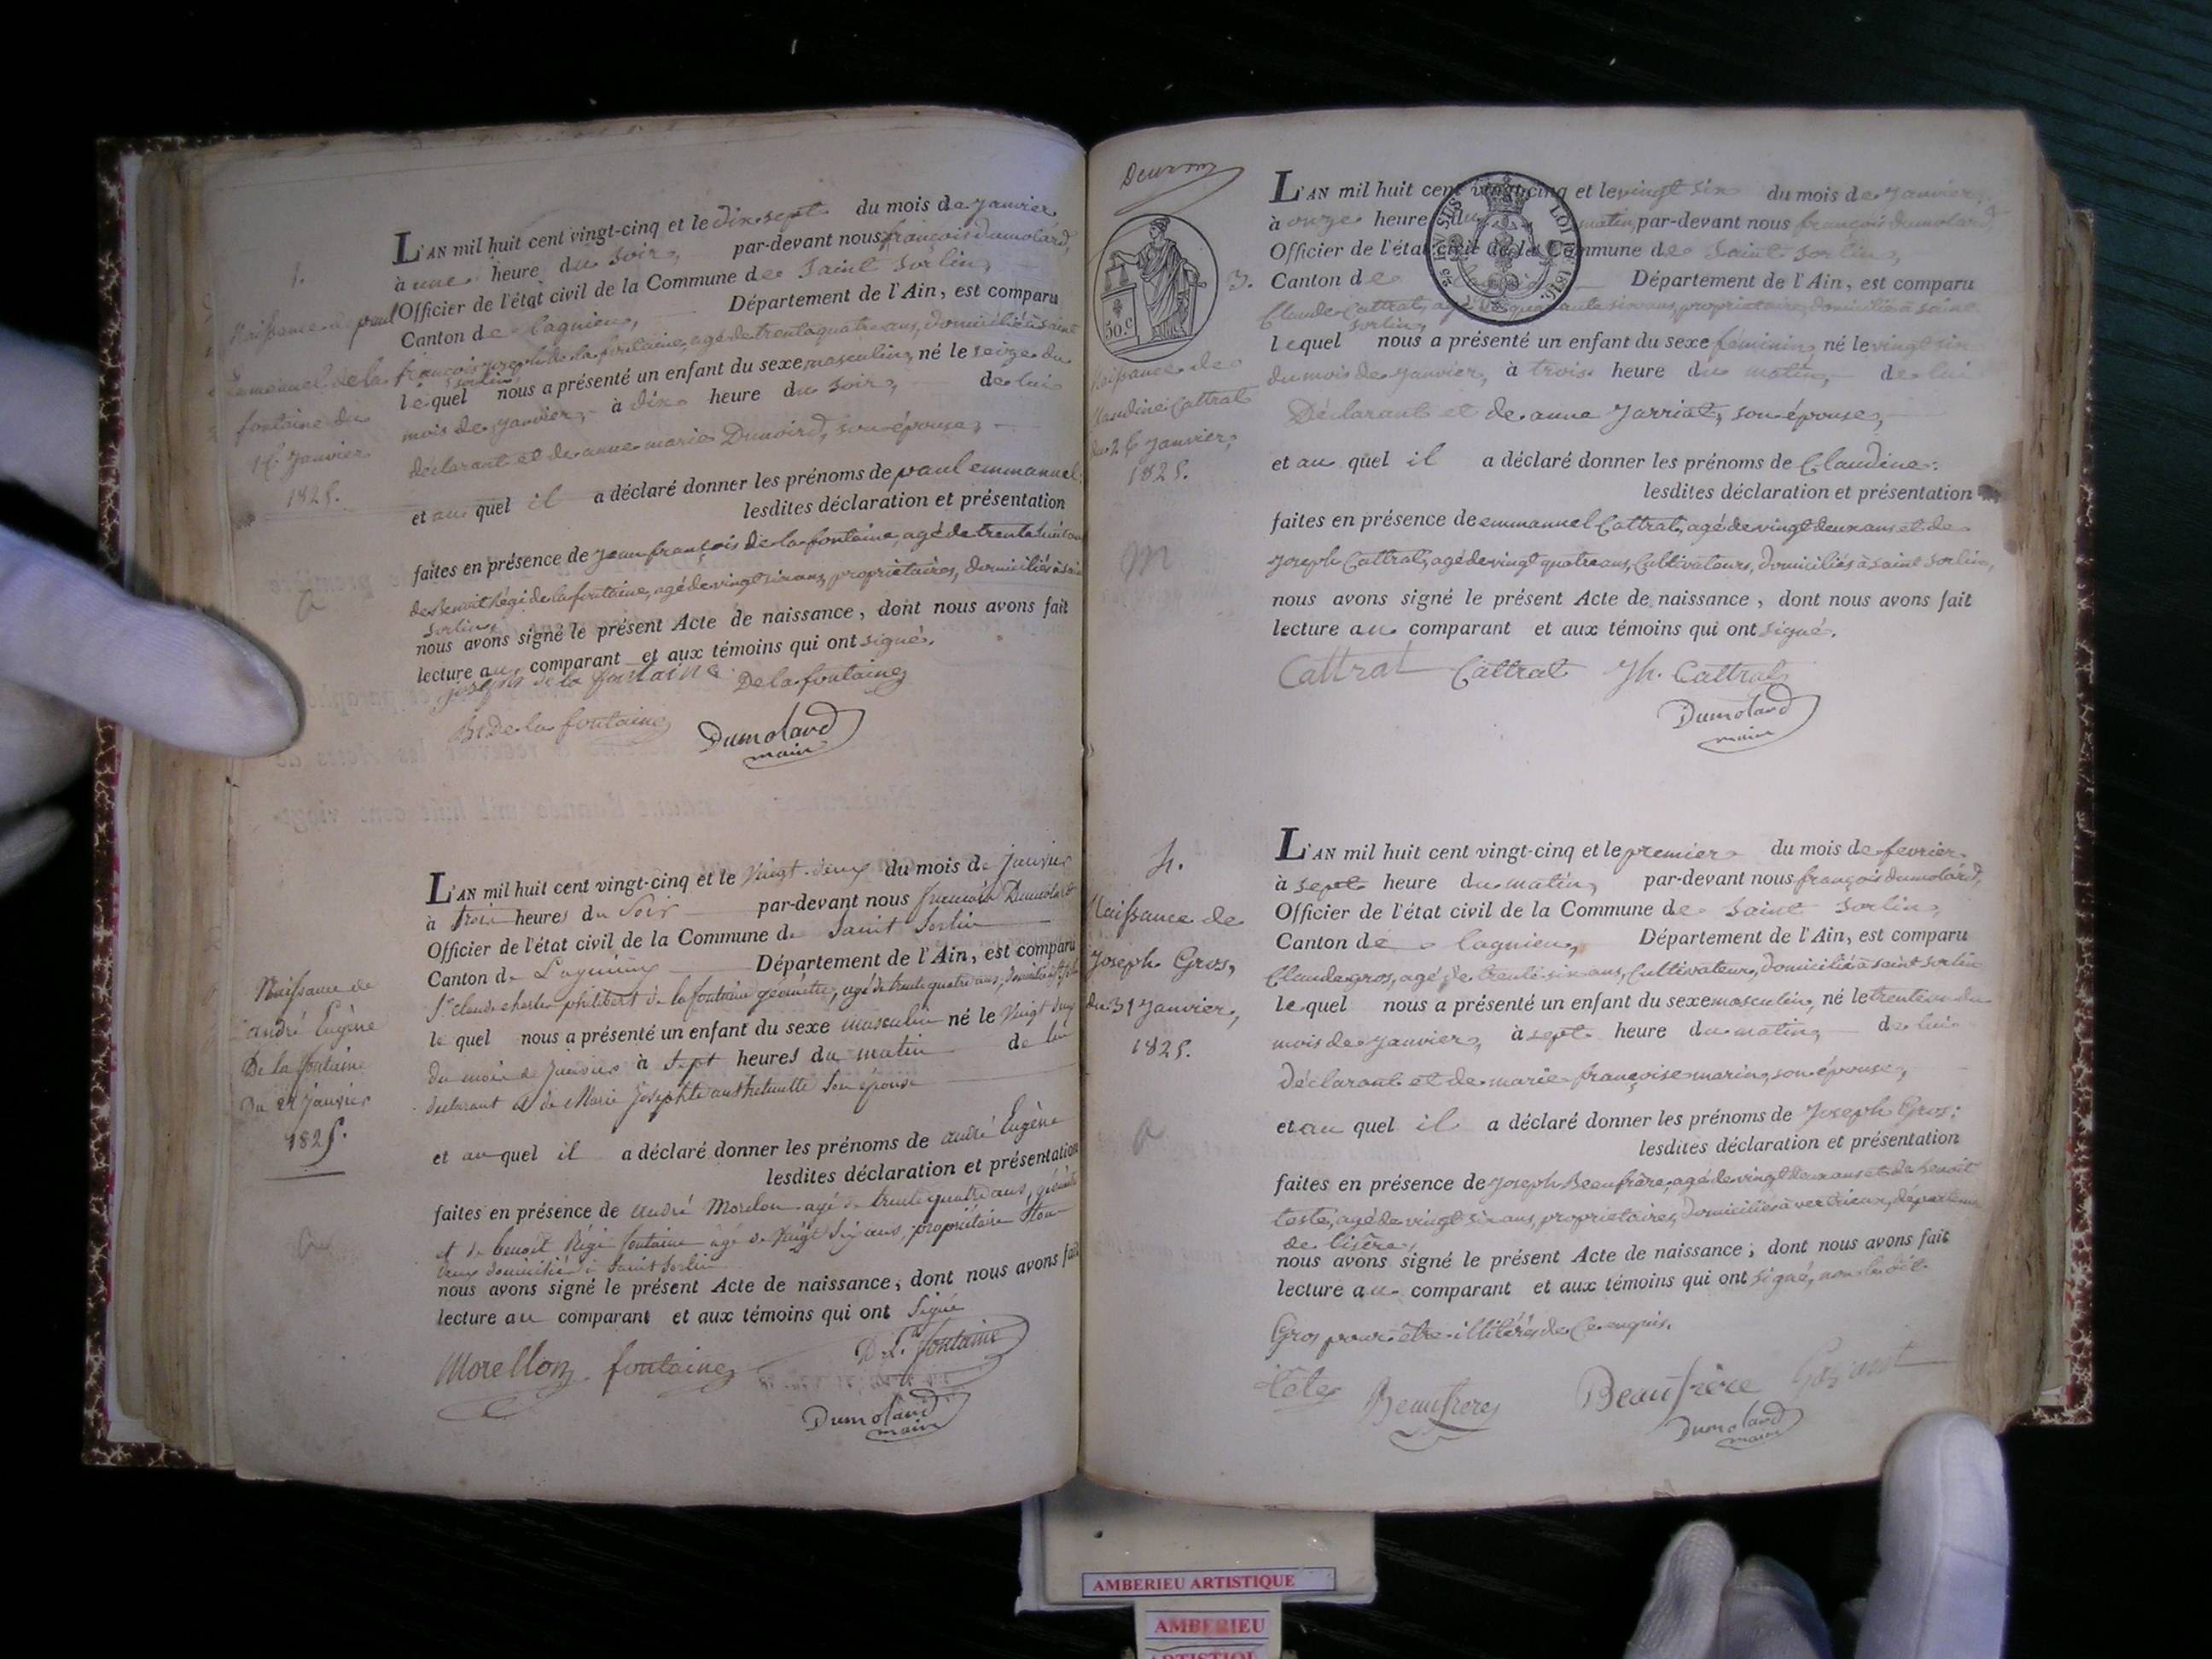 1.
Naissance de paul
emmanuel de la
fontaine du
16 Janvier
1825.
L'AN mil huit cent vingt-cinq et le dix sept du mois de janvier,
à une heure du soir, par-devant nous françois dumolard,
Officier de l'état civil de la Commune de Saint Sorlin,
Canton de Lagnieu, Département de l'Ain, est comparu
françois joseph de la fontaine, agé de trente quatre ans, domicilié à saint
sorlin,
lequel nous a présenté un enfant du sexe masculin, né le seize du
mois de janvier, à dix heure du soir, de lui
déclarant et de anne marie Dunoird, son épouse,
et au quel il a déclaré donner les prénoms de paul emmanuel:
lesdites déclaration et présentation
faites en présence de jean françois de la fontaine, agé de trente huit ans
de Benoit Régi de la fontaine, agé de vingt six ans, propriétaires, domiciliés à saint
sorlin,
nous avons signé le présent Acte de naissance, dont nous avons fait
lecture au comparant et aux témoins qui ont signé.
joseph de la fontaine Delafontaine
Bt De la fontaine Dumolard
maire
Naissance de
andré Eugène
De la fontaine
Du 22 Janvier
1825.
L'AN mil huit cent vingt-cinq et le Vingt-deux du mois de Janvier
à trois heures du Soir par-devant nous françois Dumolard
Officier de l'état civil de la Commune de Saint Sorlin
Canton de Lagnieux Département de l'Ain, est comparu
Sr. Claude charles philibert de la fontaine géomètre, agé de trente quatre ans, domicilié à St Sorlin
le quel nous a présenté un enfant du sexe masculin né le Vingt deux
du mois de Janvier à Sept heures du matin de lui
déclarant & de Marie Josephte son épouse
et au quel il a déclaré donner les prénoms de andré Eugène
lesdites déclaration et présentation
faites en présence de andré Morelon agé de trente quatre ans, géomètre
et de benoit Régi fontaine agé de Vingt Six ans, propriétaire tou-
deux domiciliés à Saint Sorlin
nous avons signé le présent Acte de naissance, dont nous avons fait
lecture au comparant et aux témoins qui ont Signé
Morellon fontaine D. La fontaine
Dumolard
maire
50.c
3.
Naissance de
Claudine Cattrat
du 26 Janvier,
1825.
L'AN mil huit cent vingt-cinq et le vingt six du mois de Janvier,
à onze heure du matin, par-devant nous françois dumolard,
Officier de l'état civil de la Commune de Saint Sorlin,
Canton de Département de l'Ain, est comparu
Claude Cattrat, agé de quarante six ans, propriétaire, domicilié à saint
sorlin,
lequel nous a présenté un enfant du sexe féminin, né le vingt six
du mois de Janvier, à trois heure du matin, de lui
Déclarant et de anne Jarriat, son épouse,
et au quel il a déclaré donner les prénoms de Claudine:
lesdites déclaration et présentation
faites en présence de emmanuel Cattrat, agé de vingt deux ans et de
Joseph Cattrat, agé de vingt quatre ans, Cultivateurs, Domiciliés à saint Sorlin,
nous avons signé le présent Acte de naissance, dont nous avons fait
lecture au comparant et aux témoins qui ont signé.
Cattrat Cattrat Jh. Cattrat
Dumolard
maire
4.
Naissance de
Joseph Gros,
du 31 Janvier,
1825.
L'AN mil huit cent vingt-cinq et le premier du mois de fevrier
à sept heure du matin, par-devant nous françois dumolard,
Officier de l'état civil de la Commune de Saint Sorlin,
Canton de Lagnieu, Département de l'Ain, est comparu
Claude gros, agé de trente six ans, Cultivateur, domicilié à saint sorlin
lequel nous a présenté un enfant du sexe masculin, né le trente un du
mois de Janvier, à sept heure du matin, de lui
Déclarant et de marie françoise marin, son épouse,
et au quel il a déclaré donner les prénoms de Joseph Gros:
lesdites déclaration et présentation
faites en présence de Joseph Beaufrère, agé de vingt deux ans et de benoit
teste, agé de vingt six ans, propriétaires, domiciliés à vertrieux, département
de l'isère,
nous avons signé le présent Acte de naissance; dont nous avons fait
lecture au comparant et aux témoins qui ont signé, non le dit
Gros pour être illitéré de ce enquis.
tête Beaufrere Beaufrere
Dumolard
maire
AMBERIEU ARTISTIQUE
AMBERIEU
ARTISTIQUE